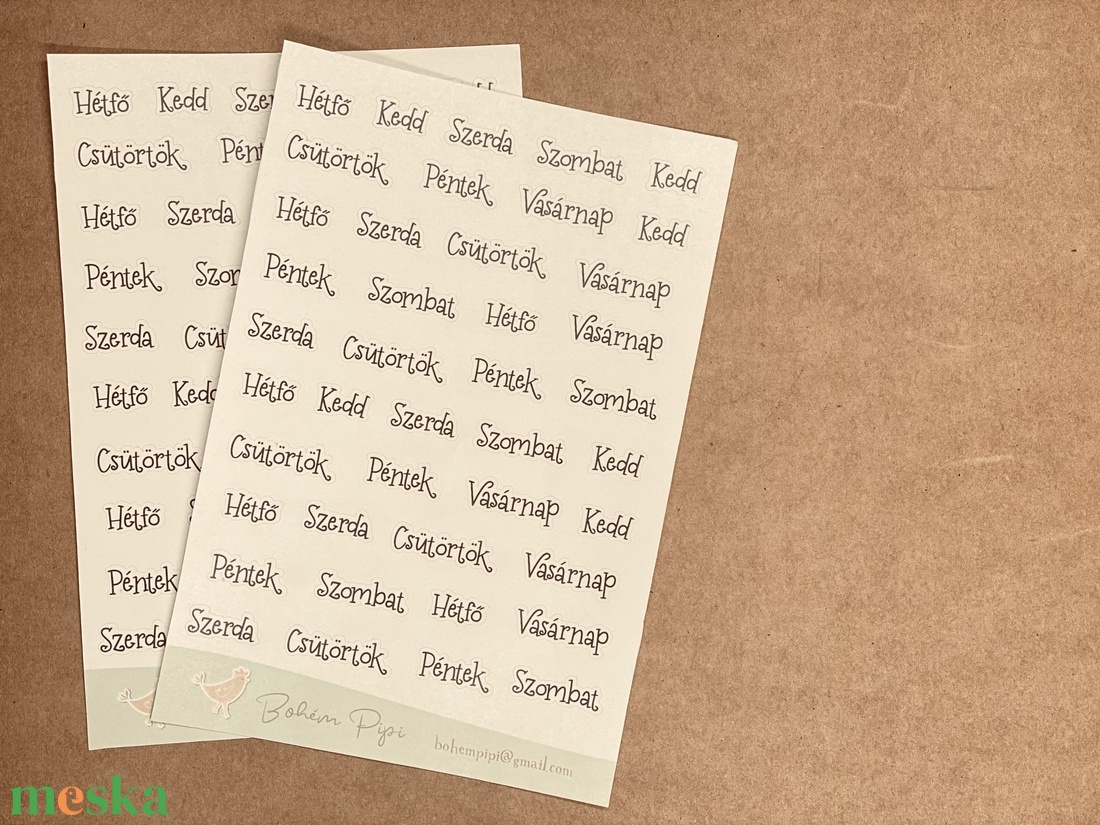 Hétfő Kedd
Csütörtök
Hétfő Szerda
Péntek
Szerda
Hétfő
Csütörtök
Hétfő
Péntek
Szerda
Hétfő Kedd Szerda Szombat Kedd
Csütörtök Péntek Vasárnap Kedd
Hétfő Szerda Csütörtök Vasárnap
Péntek Szombat Hétfő Vasárnap
Szerda Csütörtök Péntek Szombat
Hétfő Kedd Szerda Szombat Kedd
Csütörtök Péntek Vasárnap Kedd
Hétfő Szerda Csütörtök Vasárnap
Péntek Szombat Hétfő Vasárnap
Szerda Csütörtök Péntek Szombat
Bohém Pipi bohempipi@gmail.com
meska